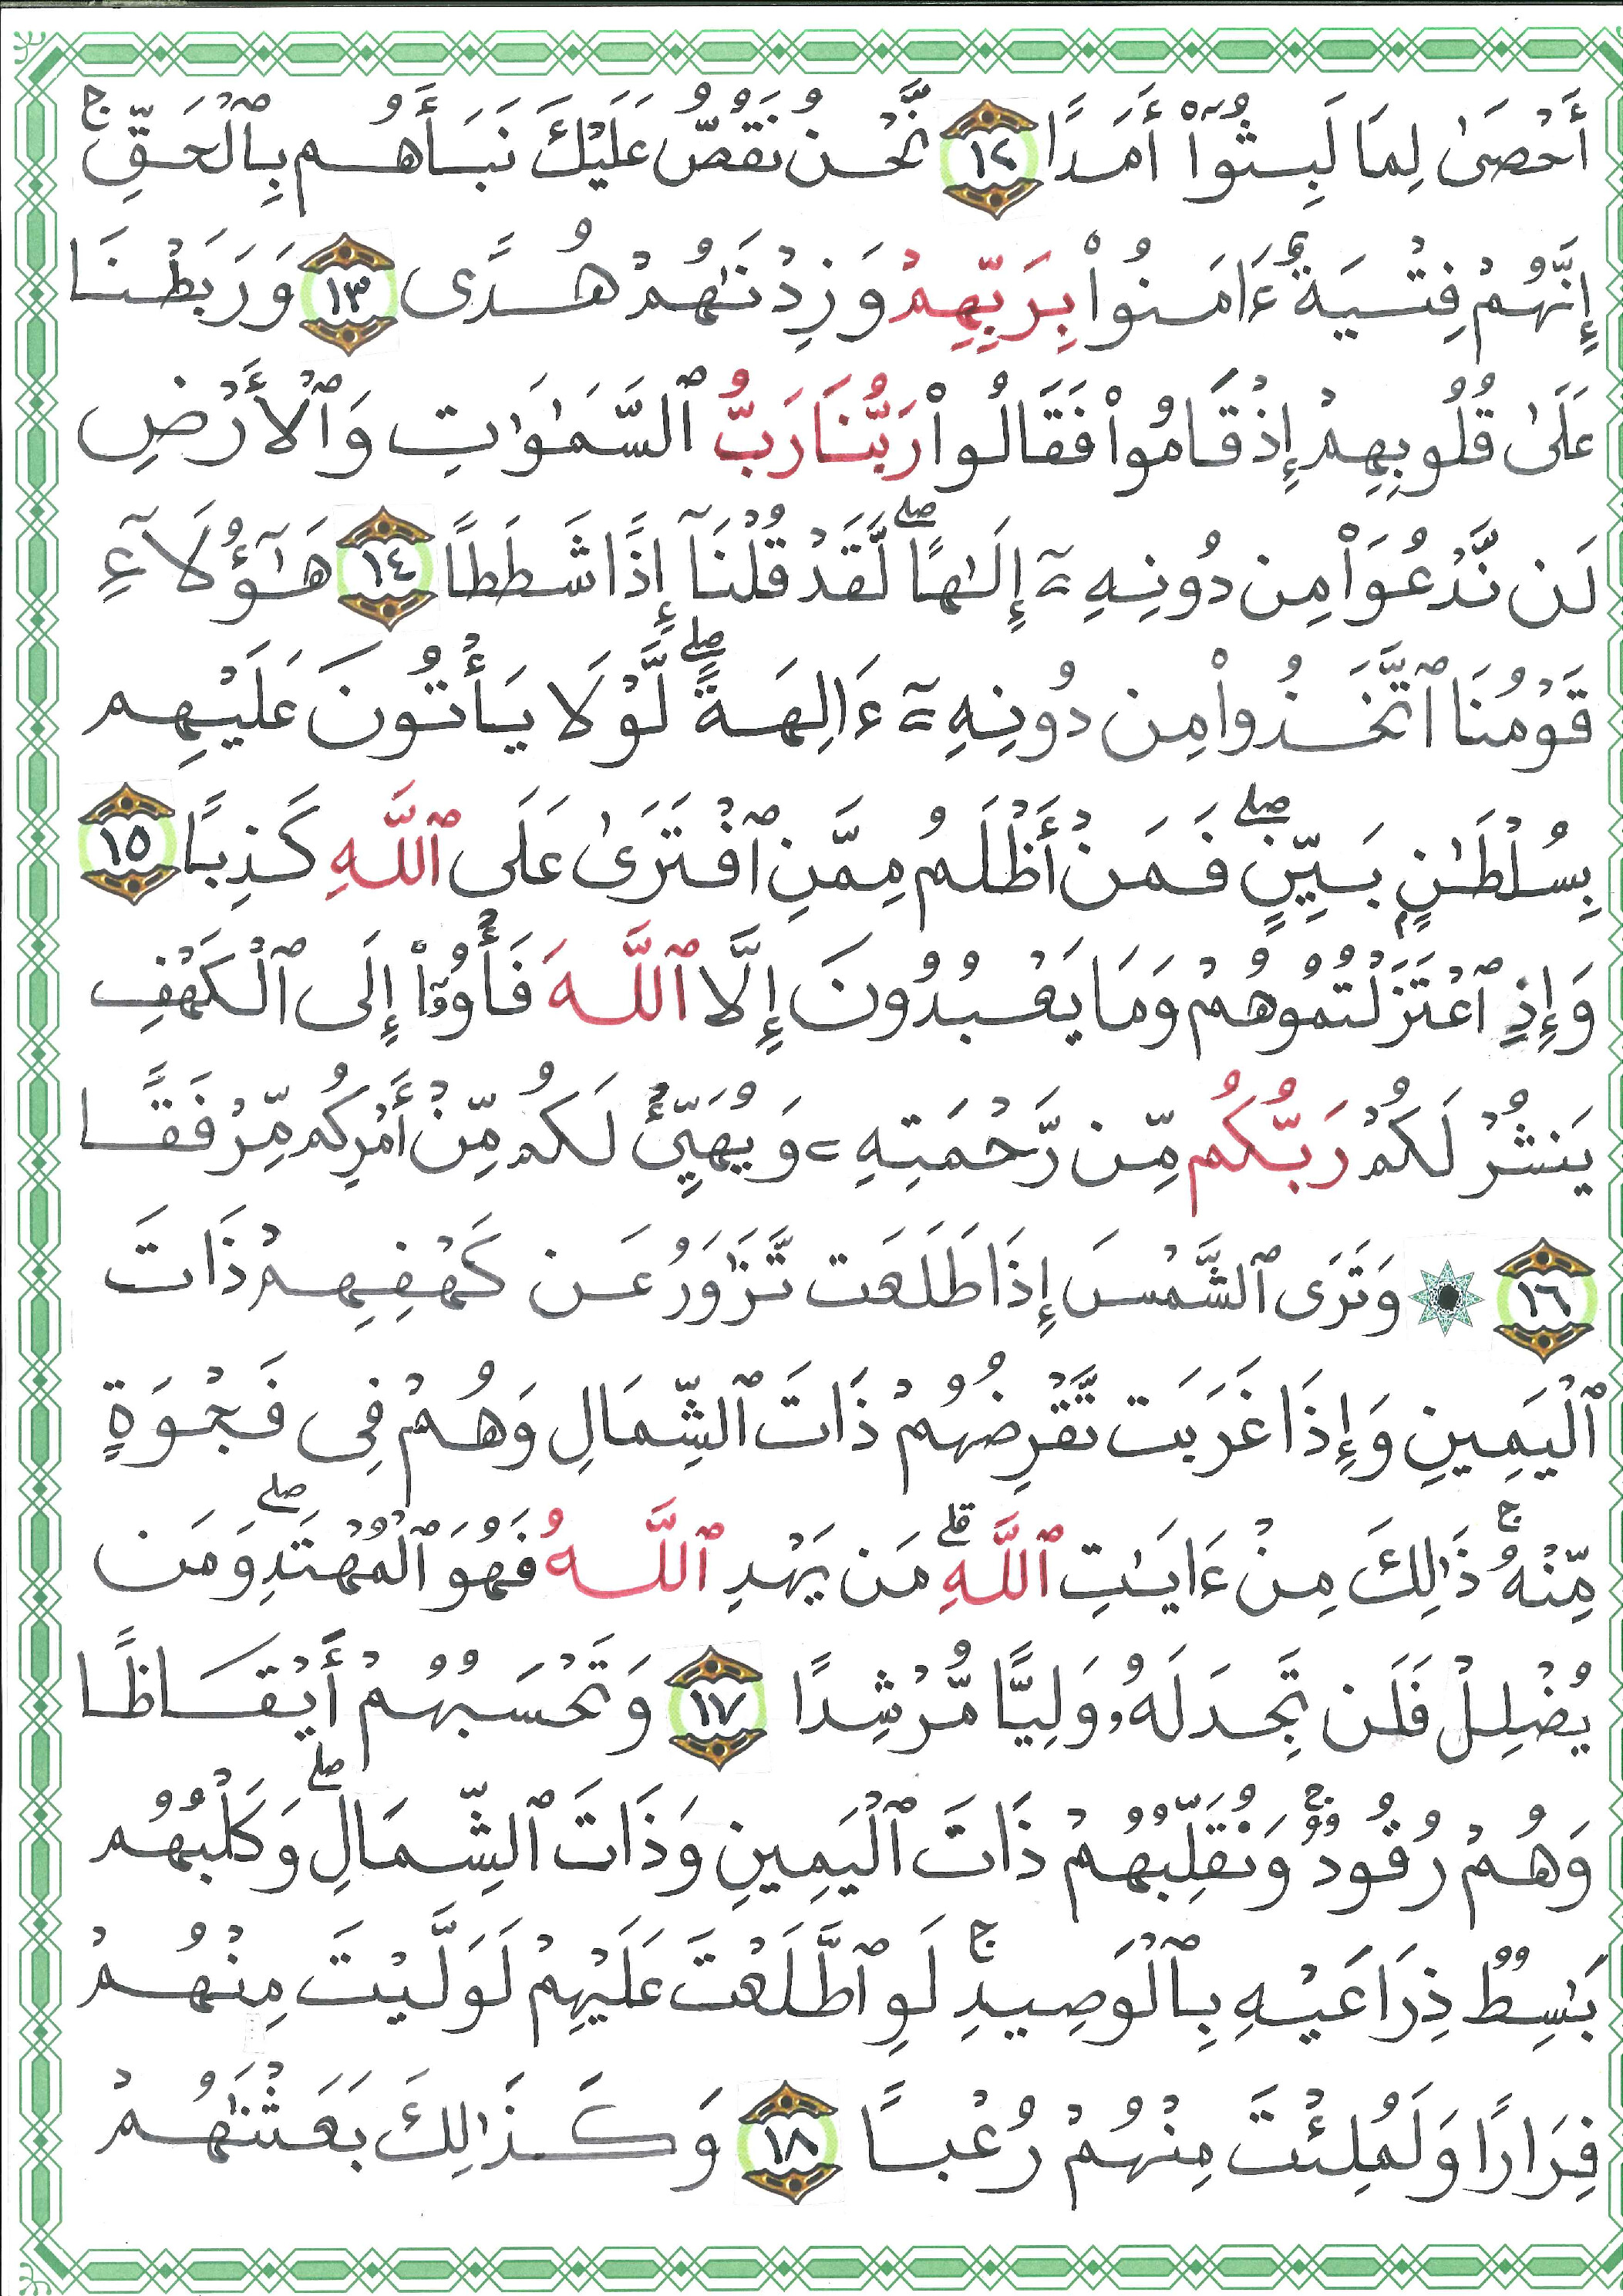 أَحْصَىٰ لِمَا لَبِثُوٓا۟ أَمَدًا ١٢ نَّحْنُ نَقُصُّ عَلَيْكَ نَبَأَهُم بِٱلْحَقِّ ۚ
إِنَّهُمْ فِتْيَةٌ ءَامَنُوا۟ بِرَبِّهِمْ وَزِدْنَٰهُمْ هُدًى ١٣ وَرَبَطْنَا
عَلَىٰ قُلُوبِهِمْ إِذْ قَامُوا۟ فَقَالُوا۟ رَبُّنَا رَبُّ ٱلسَّمَٰوَٰتِ وَٱلْأَرْضِ
لَن نَّدْعُوَا۟ مِن دُونِهِۦٓ إِلَٰهًا ۖ لَّقَدْ قُلْنَآ إِذًا شَطَطًا ١٤ هَٰٓؤُلَآءِ
قَوْمُنَا ٱتَّخَذُوا۟ مِن دُونِهِۦٓ ءَالِهَةً ۖ لَّوْلَا يَأْتُونَ عَلَيْهِم
بِسُلْطَٰنٍۭ بَيِّنٍ ۖ فَمَنْ أَظْلَمُ مِمَّنِ ٱفْتَرَىٰ عَلَى ٱللَّهِ كَذِبًا ١٥
وَإِذِ ٱعْتَزَلْتُمُوهُمْ وَمَا يَعْبُدُونَ إِلَّا ٱللَّهَ فَأْوُۥٓا۟ إِلَى ٱلْكَهْفِ
يَنشُرْ لَكُمْ رَبُّكُم مِّن رَّحْمَتِهِۦ وَيُهَيِّئْ لَكُم مِّنْ أَمْرِكُم مِّرْفَقًا
١٦ ۞ وَتَرَى ٱلشَّمْسَ إِذَا طَلَعَت تَّزَٰوَرُ عَن كَهْفِهِمْ ذَاتَ
ٱلْيَمِينِ وَإِذَا غَرَبَت تَّقْرِضُهُمْ ذَاتَ ٱلشِّمَالِ وَهُمْ فِى فَجْوَةٍ
مِّنْهُ ۚ ذَٰلِكَ مِنْ ءَايَٰتِ ٱللَّهِ ۗ مَن يَهْدِ ٱللَّهُ فَهُوَ ٱلْمُهْتَدِ ۖ وَمَن
يُضْلِلْ فَلَن تَجِدَ لَهُۥ وَلِيًّا مُّرْشِدًا ١٧ وَتَحْسَبُهُمْ أَيْقَاظًا
وَهُمْ رُقُودٌ ۚ وَنُقَلِّبُهُمْ ذَاتَ ٱلْيَمِينِ وَذَاتَ ٱلشِّمَالِ ۖ وَكَلْبُهُم
بَٰسِطٌ ذِرَاعَيْهِ بِٱلْوَصِيدِ ۚ لَوِ ٱطَّلَعْتَ عَلَيْهِمْ لَوَلَّيْتَ مِنْهُمْ
فِرَارًا وَلَمُلِئْتَ مِنْهُمْ رُعْبًا ١٨ وَكَذَٰلِكَ بَعَثْنَٰهُمْ